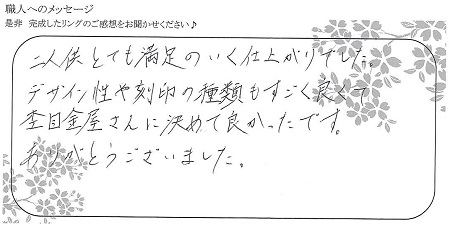 職人へのメッセージ
是非 完成したリングのご感想をお聞かせください♪
二人供とても満足のいく仕上がりでした。
デザイン性や刻印の種類もすごく良くて
杢目金屋さんに決めて良かったです。
ありがとうございました。